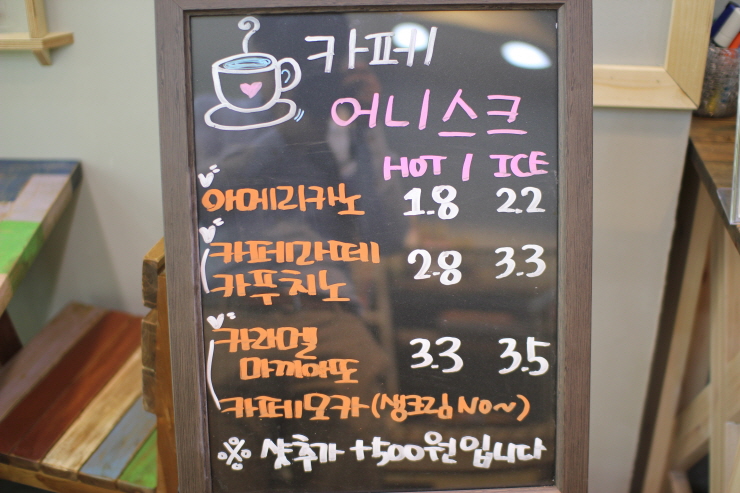 카페
어니스크
HOT / ICE
아메리카노 1.8 2.2
카페라떼
카푸치노 2.8 3.3
카라멜
마끼아또 3.3 3.5
카페모카 (생크림 NO~)
※ 샷추가 +500원입니다